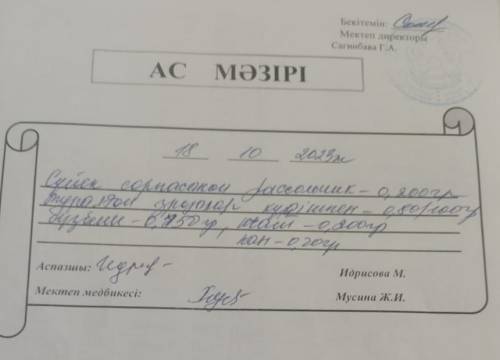 Бекітемін:
Мектеп директоры
Сагинбаева Г.А.
АС МӘЗІРІ
18 10 2023ж
Сүйек сорпасынан рассольник – 0,200гр
күрішпен – 0,80/100гр
– 0,150гр, шай – 0,200гр
нан – 0,20гр
Аспазшы:
Идрисова М.
Мектеп медбикесі:
Мусина Ж.И.